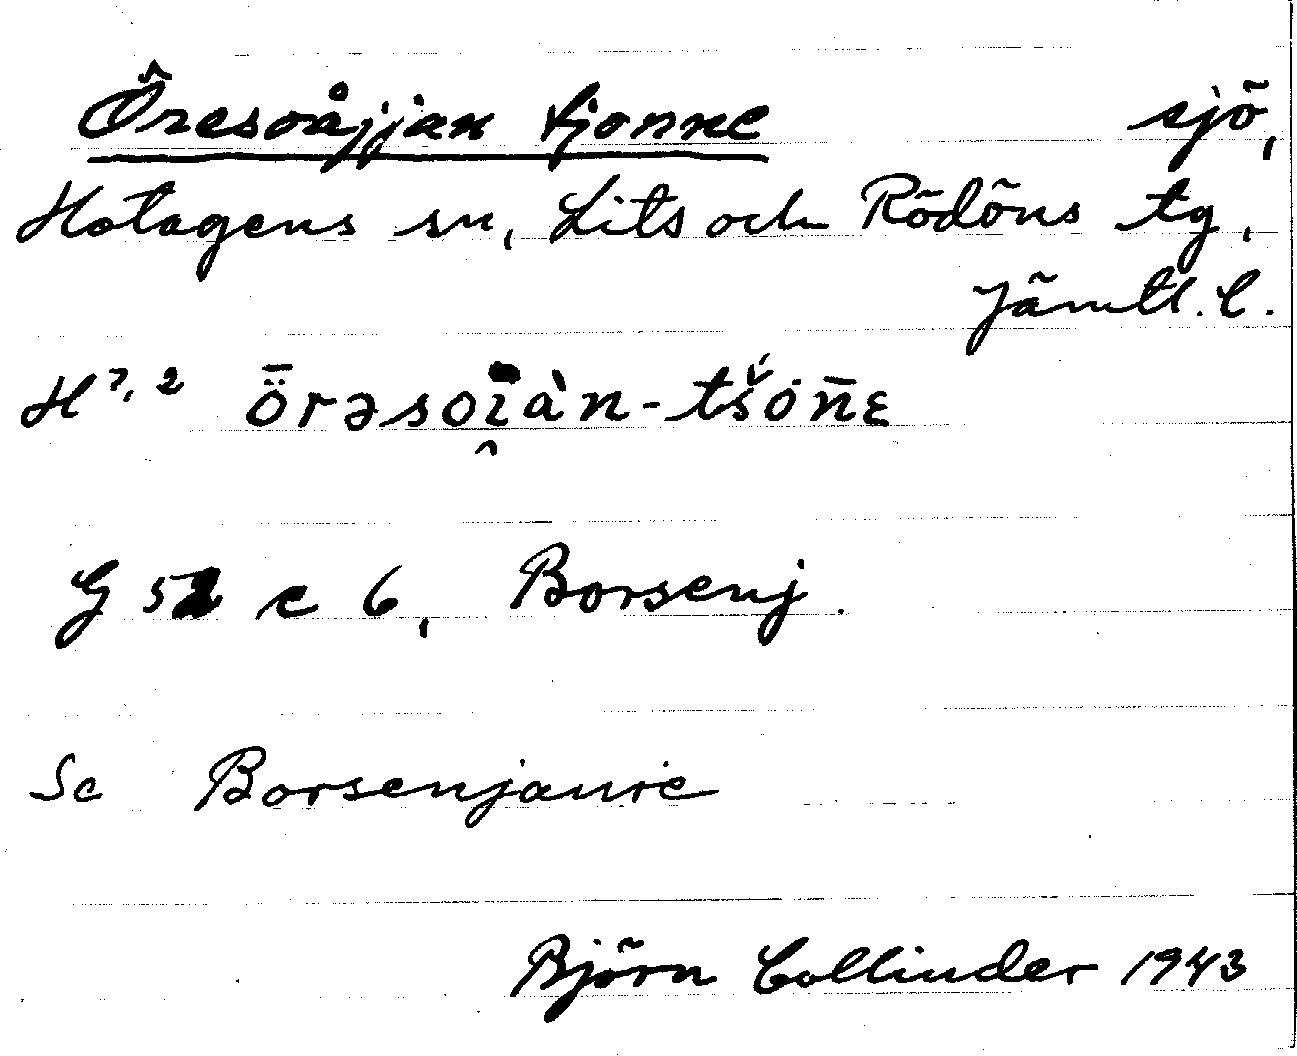 Öresoåjjan tjonne sjö,
Hotagens sn, Lits och Rödöns tg,
Jämtl. l.
H 7, 2 ȫrəsoi̯àn-tšon̄ɛ
G 52 c 6, Borsenj.
Sc Borsenjaure
Björn Collinder 1943